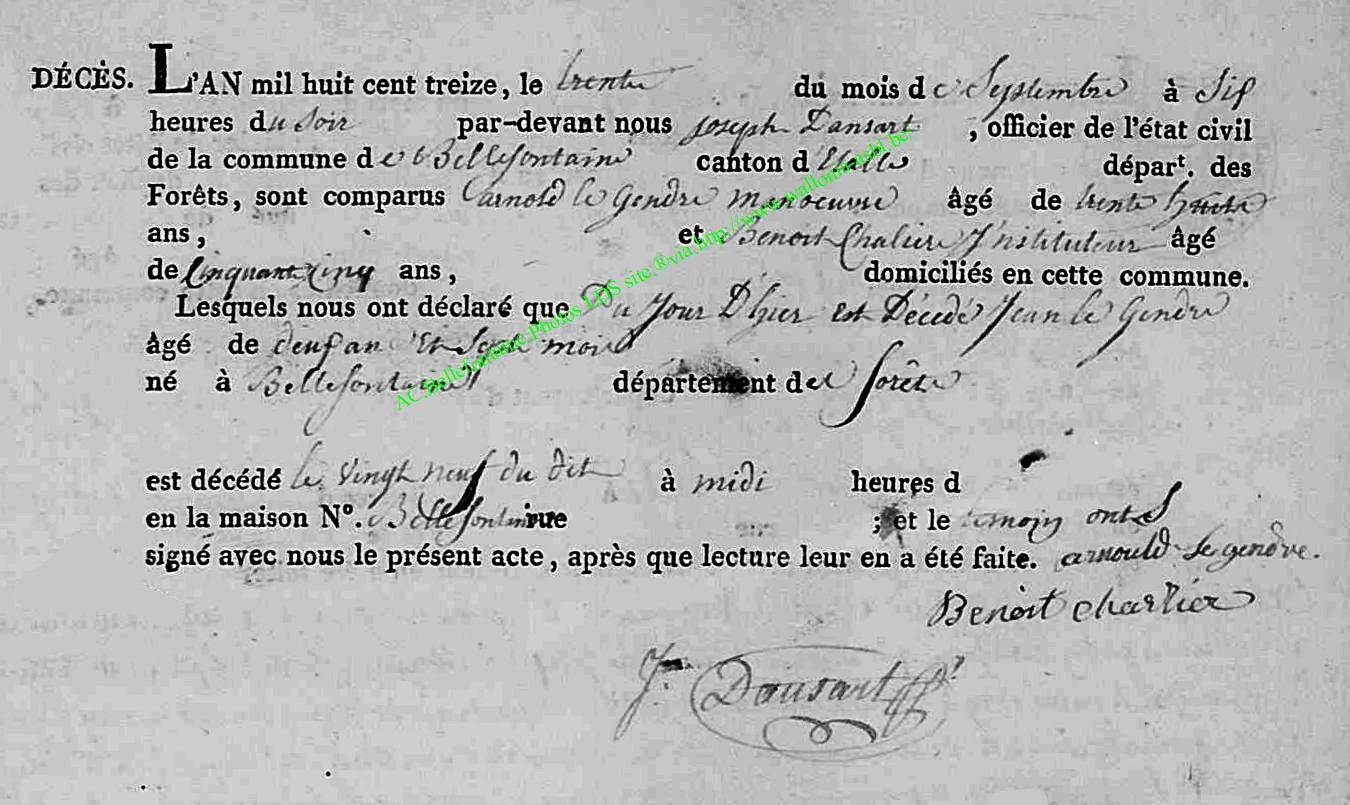 DÉCÈS. L'AN mil huit cent treize, le trente du mois de Septembre à Six
heures du Soir par-devant nous joseph Dansart, officier de l'état civil
de la commune de Bellefontaine canton d'Etalle départ. des
Forêts, sont comparus arnold le Gendre manoeuvre âgé de trente huit
ans, et Benoit Chalier Instituteur âgé
de Cinquante Cinq ans, domiciliés en cette commune.
Lesquels nous ont déclaré que Du Jour D'hier est Décédé Jean le Gendre
âgé de deux an Et Sept mois
né à Bellefontaine département de forêts
est décédé le vingt neuf du dit à midi heures d
en la maison N°. Bellefontaine rue ; et le temoin ont
signé avec nous le présent acte, après que lecture leur en a été faite. arnould le gendre.
Benoit Charlier
Jh Dansart
AC.Bellefontaine.Photos LDS site ®via.http://www.wallonia.be